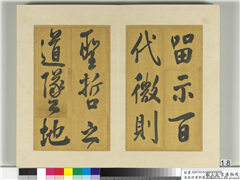 留示百
代微則
聖哲之
道墜地
18